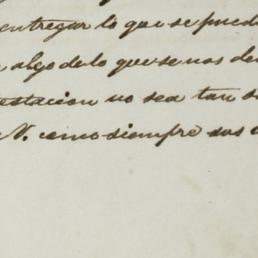 entregar lo que se pued
algo de lo que se nos de
estacion no sea tan s
N. como siempre sus